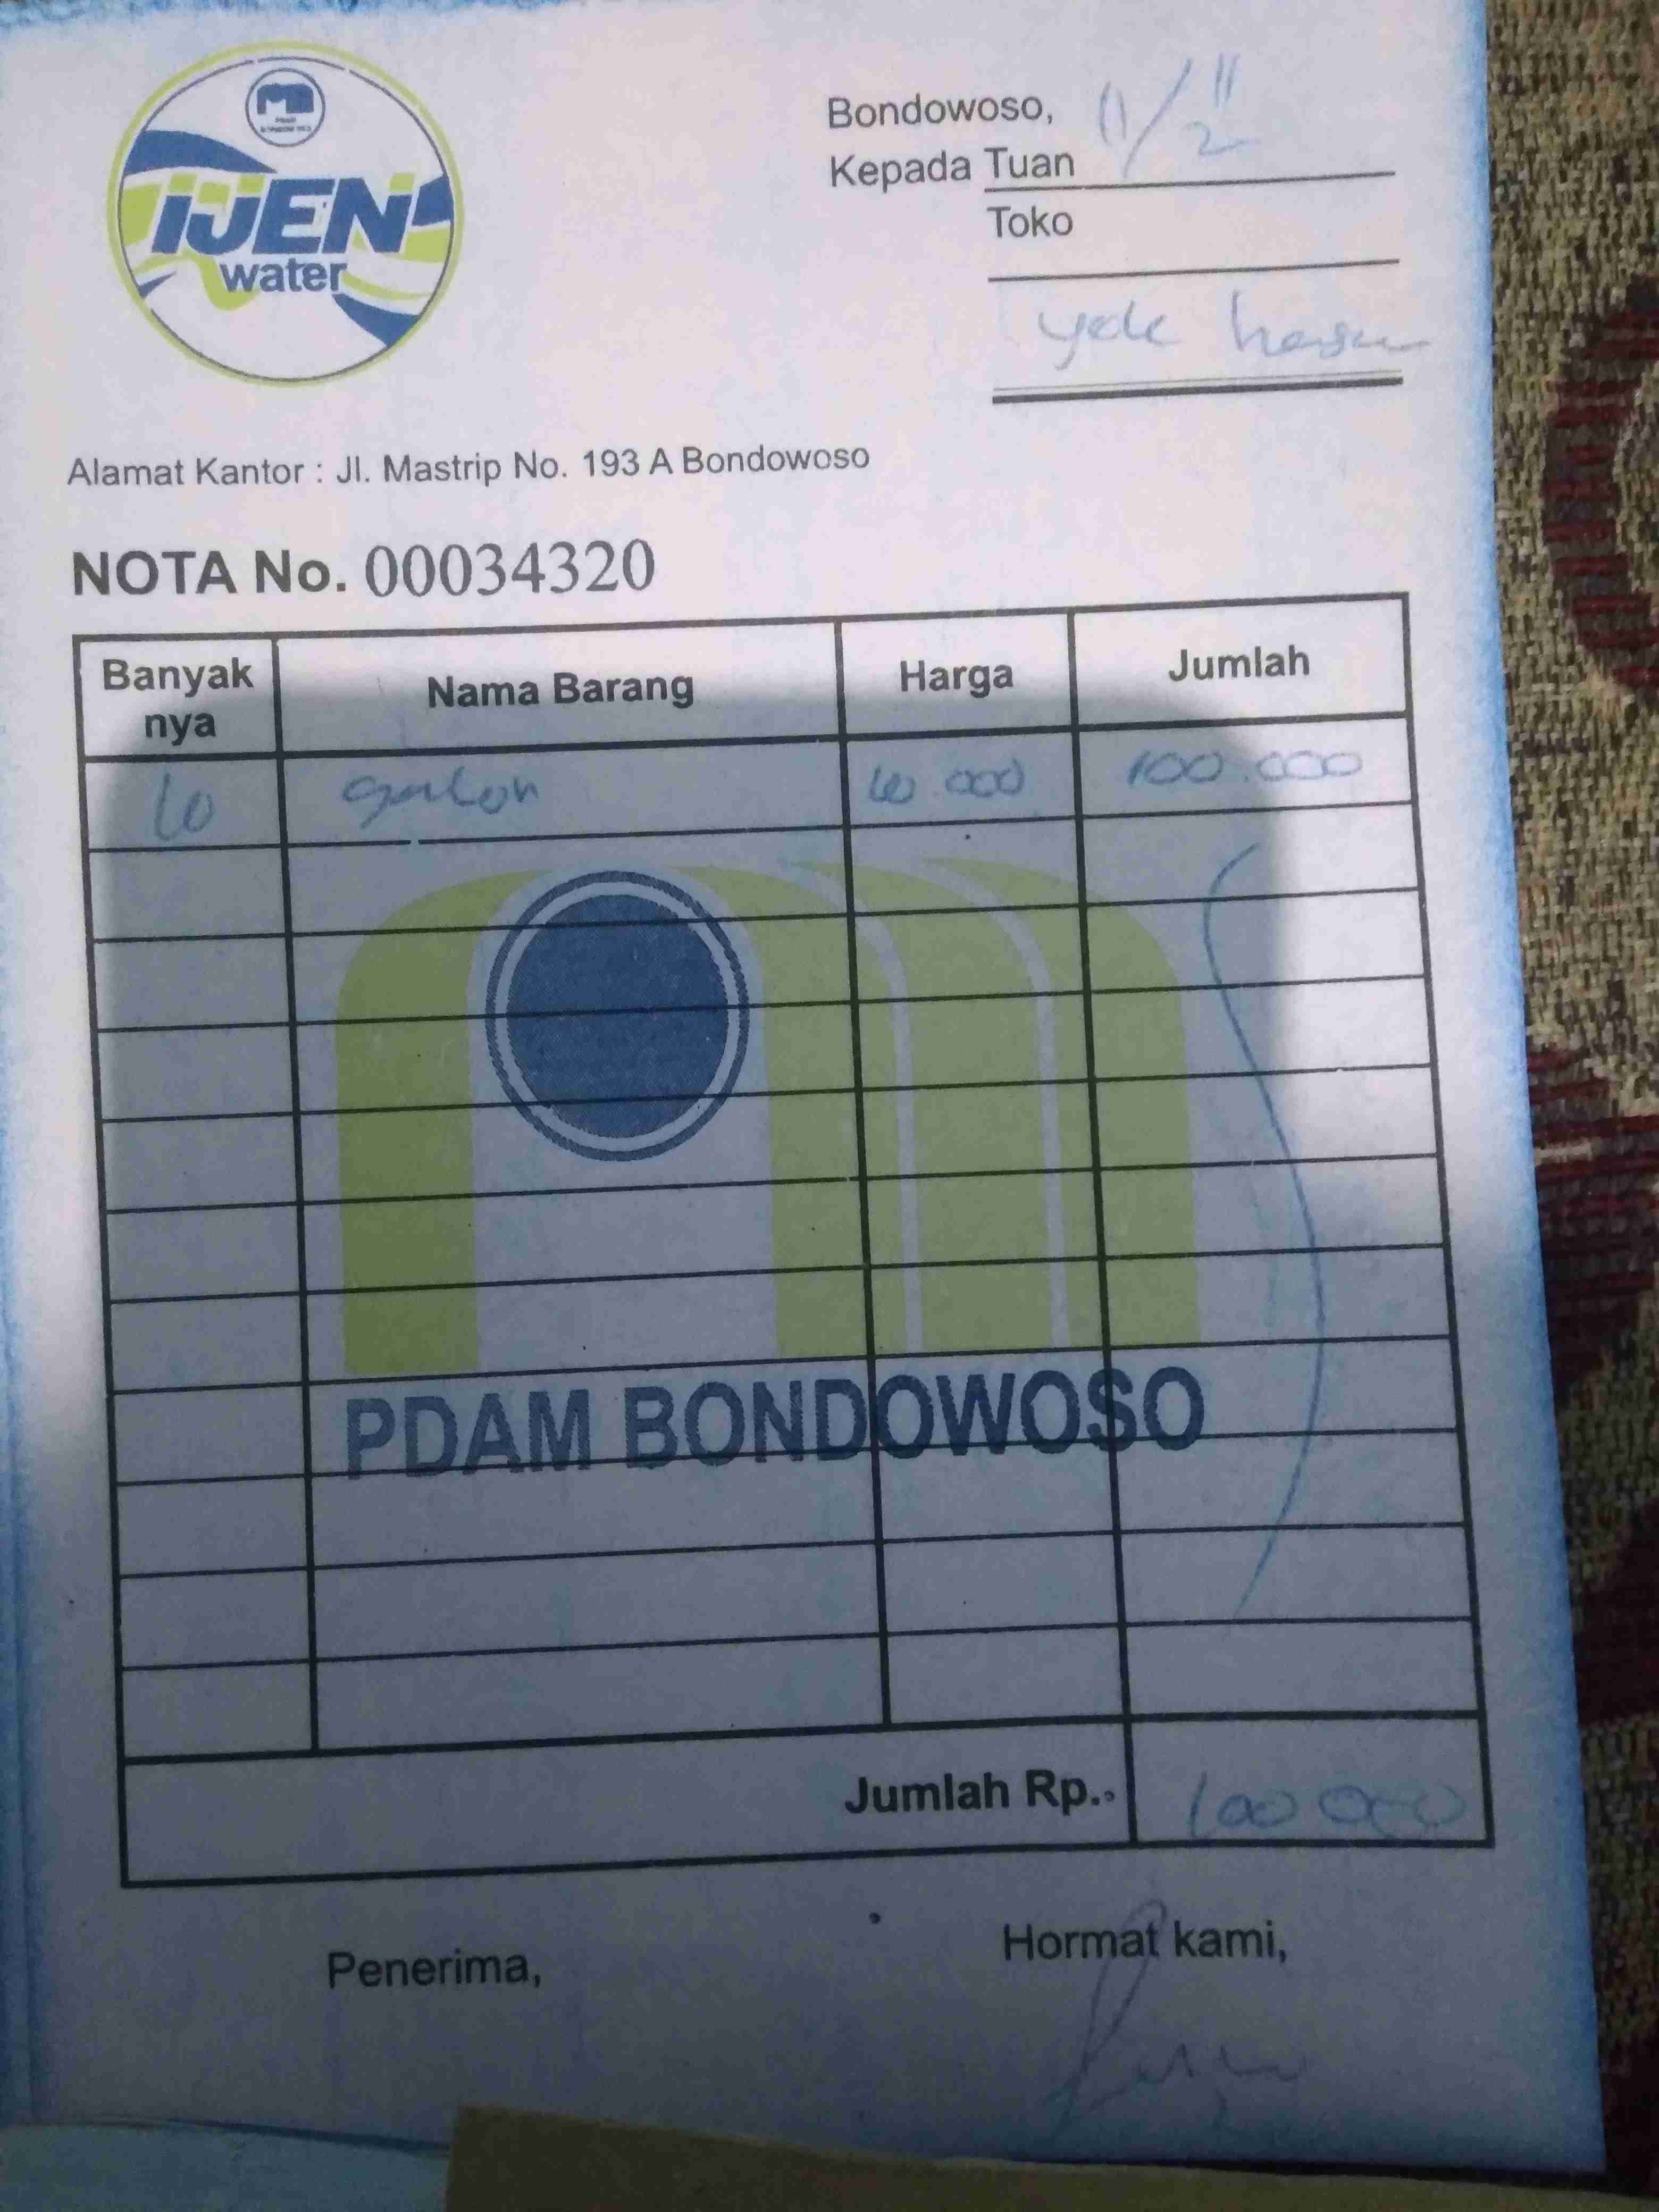 IJEN
water
Bondowoso, 11/11
2
Kepada Tuan
Toko
Alamat Kantor : Jl. Mastrip No. 193 A Bondowoso
NOTA No. 00034320
Banyak nya Nama Barang Harga Jumlah
10 galon 10.000 100.000
PDAM BONDOWOSO
Jumlah Rp. 100 000
Penerima, Hormat kami,